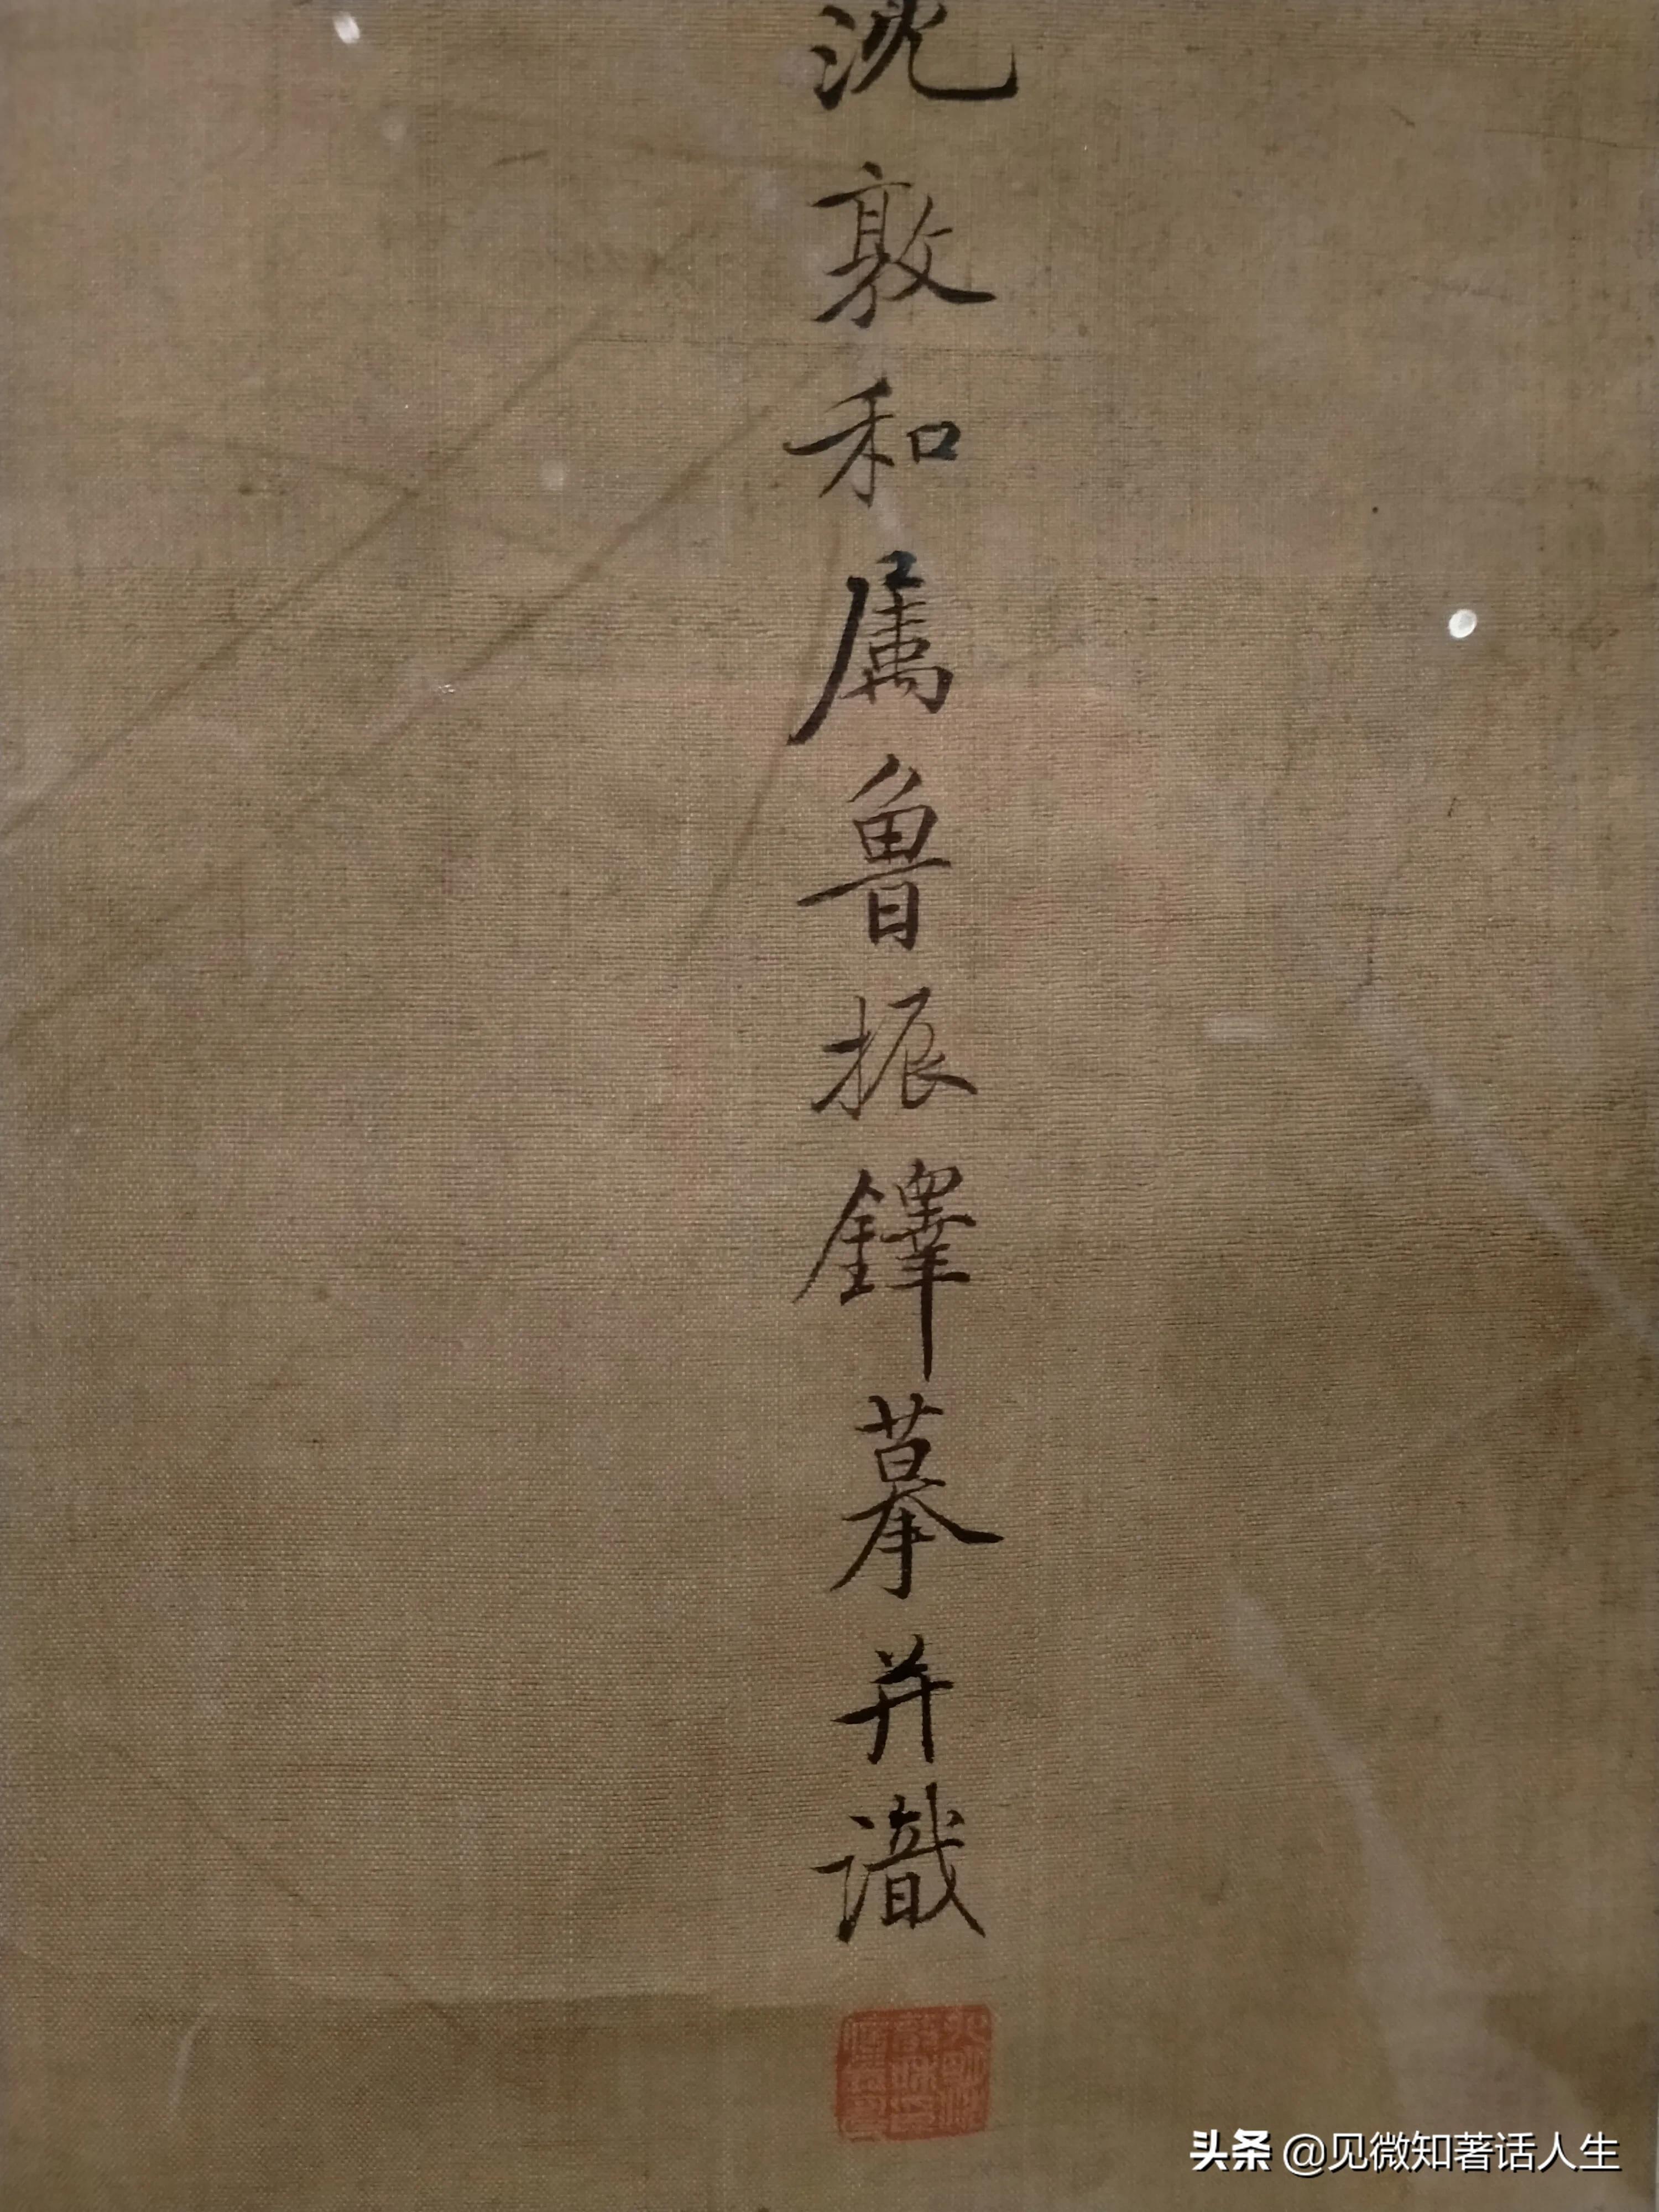 沈敦和属鲁振鐸摹并識
头条 @见微知著话人生